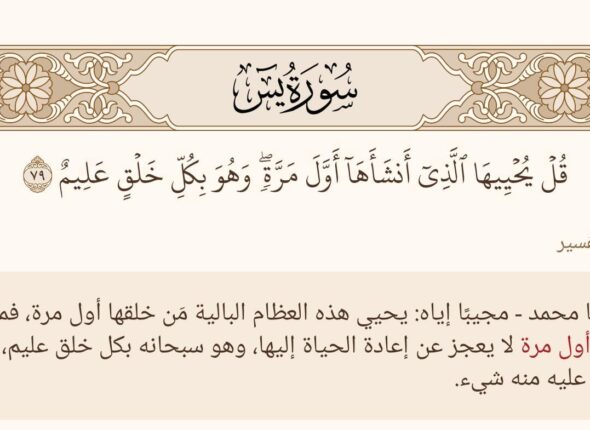 سُورَةُ يسٓ
قُلۡ يُحۡيِيهَا ٱلَّذِيٓ أَنشَأَهَآ أَوَّلَ مَرَّةٖۖ وَهُوَ بِكُلِّ خَلۡقٍ عَلِيمٌ ٧٩
محمد - مجيبًا إياه: يحيي هذه العظام البالية مَن خلقها أول مرة،
أول مرة لا يعجز عن إعادة الحياة إليها، وهو سبحانه بكل خلق عليم،
عليه منه شيء.